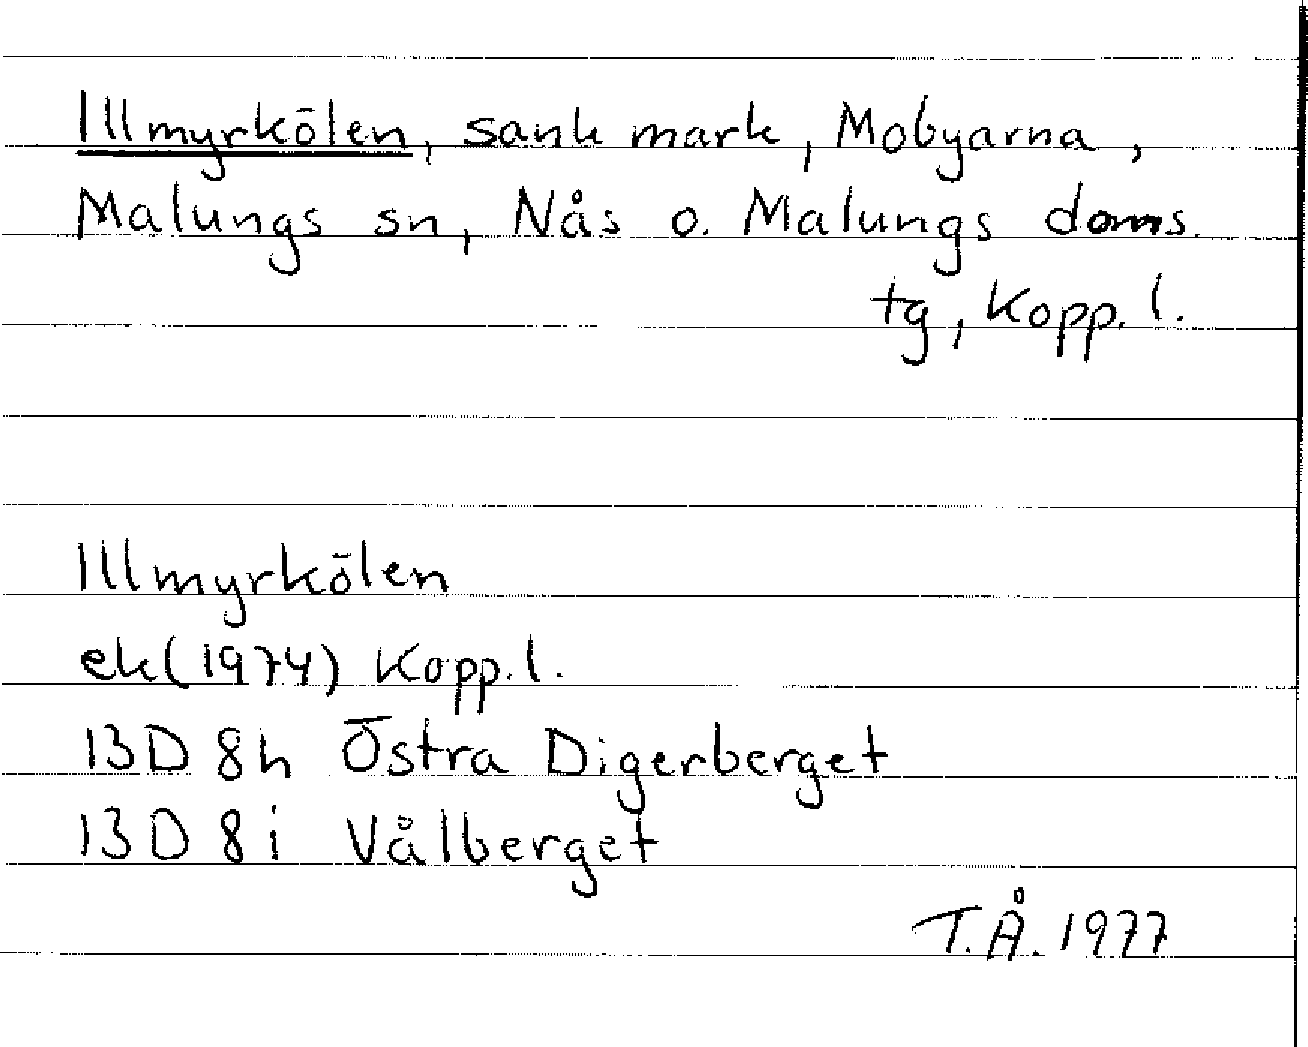 Illmyrkölen, sank mark, Mobyarna,
Malungs sn, Nås o. Malungs doms.
tg, Kopp. l.
Illmyrkölen
ek (1974) Kopp. l.
13D 8h Östra Digerberget
13D 8i Vålberget
T.Å. 1977